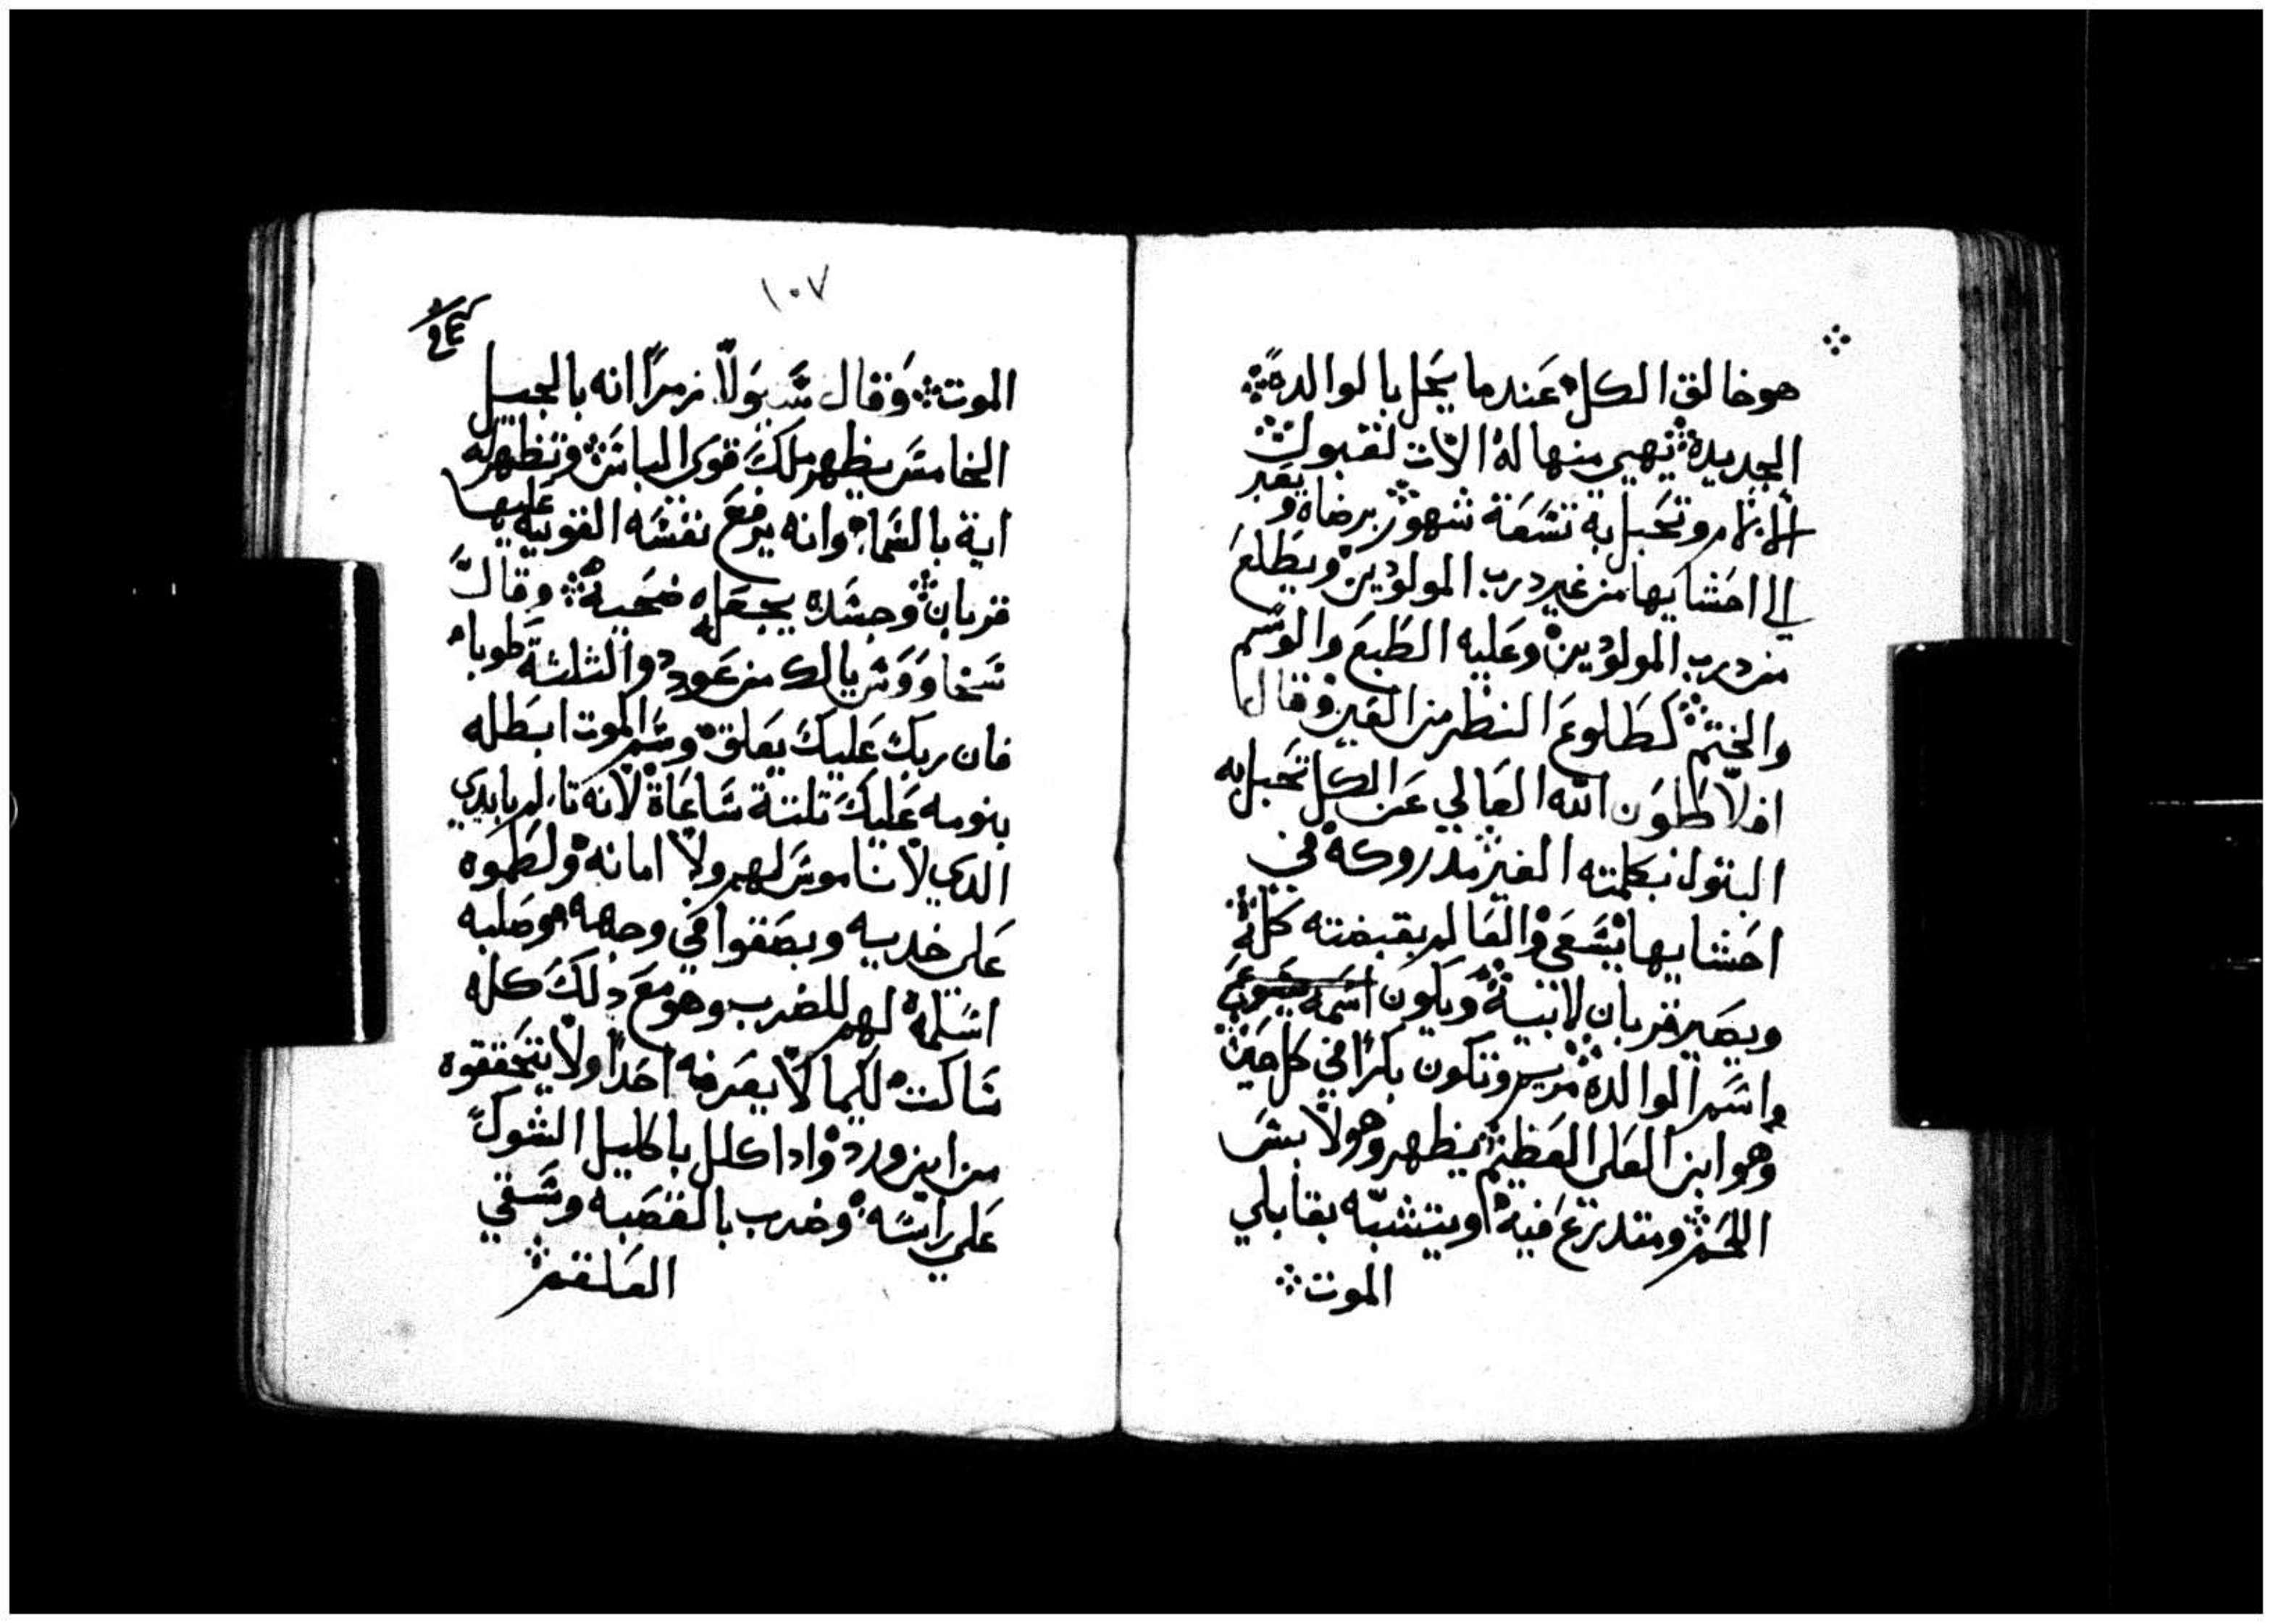 هو خالق الكل عندما يحل بالوالدة
الجديدة تهيي منها له الات لقبول
وتحبل به تسعة شهور برضاه ويعبر
الي احشايها من غير درب المولودين ويطلع
من درب المولودين وعليه الطبع والوسم
والختم كطلوع النظر من العين وقال
افلاطون الله العالي عن الكل تحبل به
البتول بكلمته الغير مدروكة في
احشايها يسعي والعالم بقبضته كله
ويصير قربان لابيه ويكون اسمه يسوع
واسم الوالدة مريم وتكون بكرا في كل حين
وهو ابن العلي العظيم يظهر وهو لابس
اللحم ومتدرع فيه او يتشبه بقابلي
الموت
١٠٧
الموت وقال سيولا زمرا انه بالجيل
الخامس يظهر ملك قوي الباس وتظهر له
اية بالسما وانه يرفع نفسه القويه عليها
قربان وجسده يجعله ضحية وقال
سخاووس يالك من عود والثلثة طوباه
فان ربك عليك يعلق وسم الموت ابطله
بنومه عليك تلتة ساعاة لانه تالم بايدي
الدي لا ناموس لهم ولا امانه ولطموه
علي خديه وبصقوا في وجهه وصلبه
اسلمه لهم للضرب وهو مع دلك كله
ساكت لكيما لا يعرفه احدا ولا يتحققوه
من اين ورد وادا كلل باكليل الشوك
علي راسه وضرب بالقصبه وسقي
العلقم